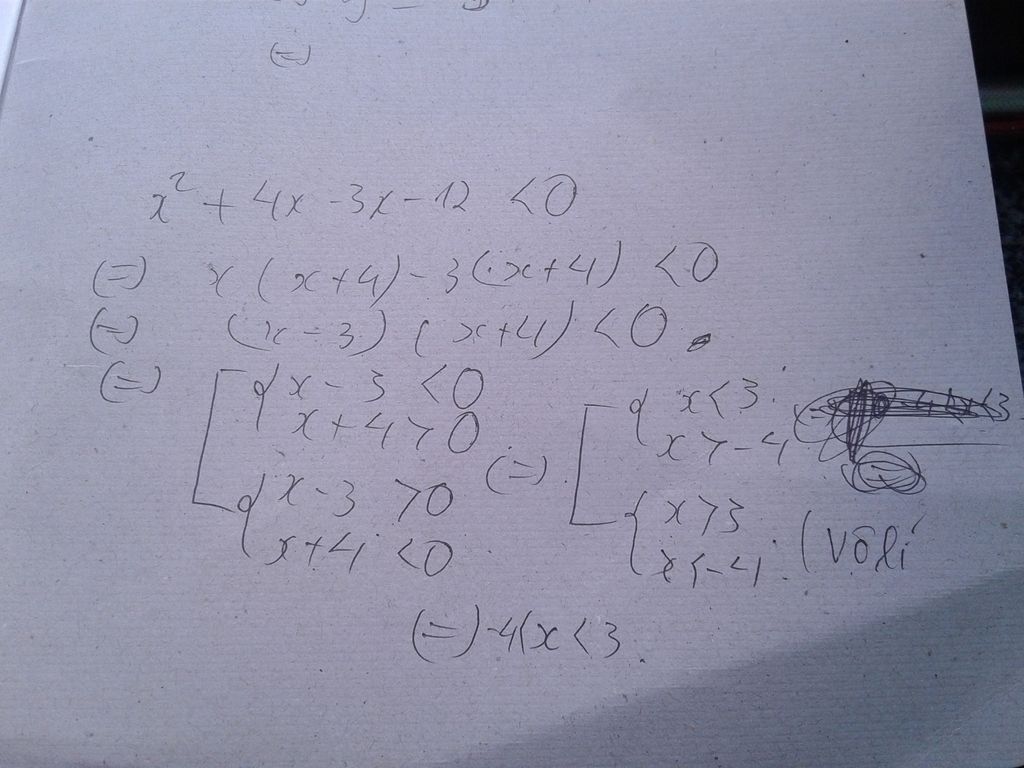 (=)
x² + 4x - 3x - 12 < 0
(=) x (x+4) - 3 (x+4) < 0
(=) (x - 3) (x+4) < 0
(=) [ { x - 3 < 0 (=) [ { x < 3
x + 4 > 0 x > -4
{ x - 3 > 0 { x > 3
x + 4 < 0 x < -4 (vô lí
(=) -4 < x < 3